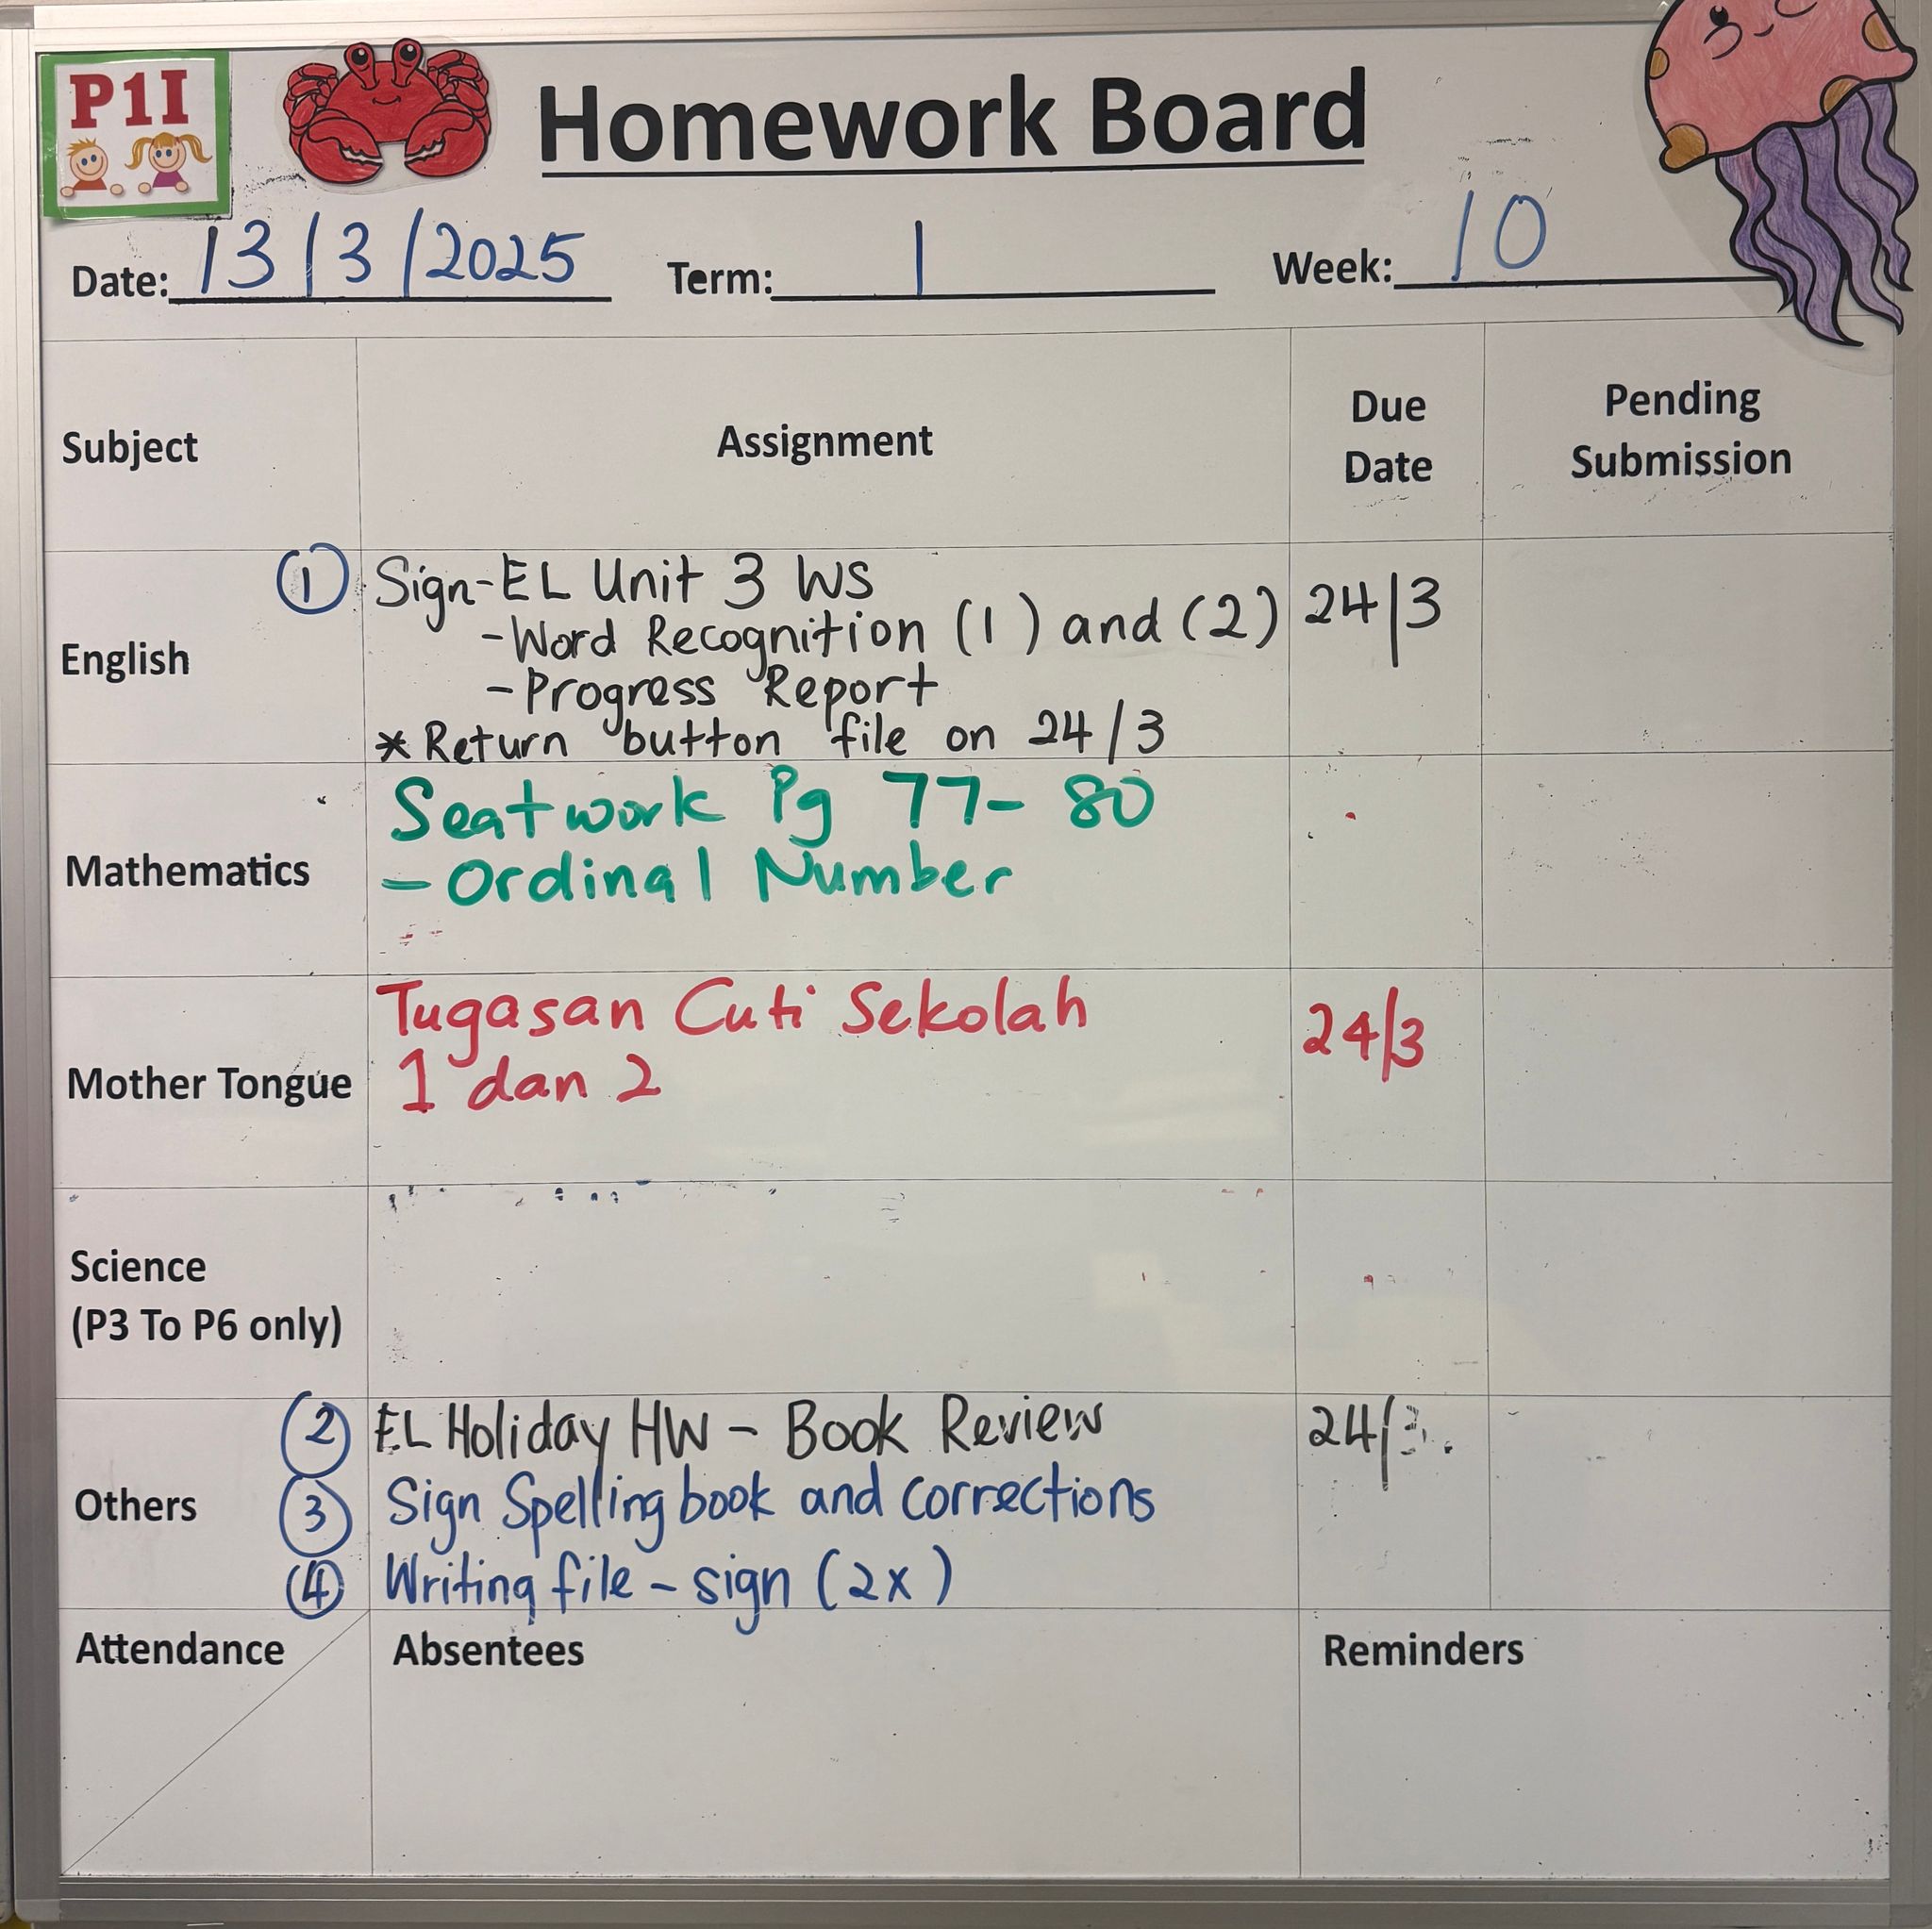 P1I
Homework Board
Date: 13/3/2025 Term: 1 Week: 10
Subject Assignment Due Date Pending Submission
English
① Sign-EL Unit 3 WS
-Word Recognition (1) and (2) 24/3
-Progress Report
*Return button file on 24/3
Mathematics
Seatwork Pg 77-80
-Ordinal Number
Mother Tongue
Tugasan Cuti Sekolah 24/3
1 dan 2
Science
(P3 To P6 only)
Others
② EL Holiday HW - Book Review 24/3.
③ Sign Spelling book and corrections
④ Writing file - sign (2x)
Attendance Absentees Reminders